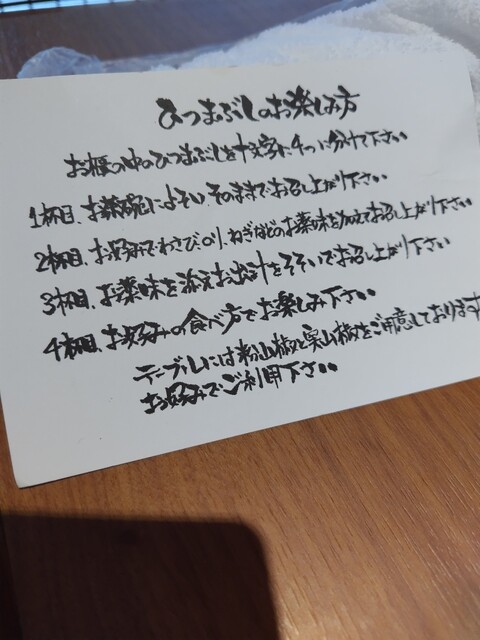 ひつまぶしのお楽しみ方
お櫃の中のひつまぶしを十文字に4つに分けて下さい
1杯目、お茶碗によそい そのままでお召し上がり下さい
2杯目、お好みでわさび、のり、ねぎなどのお薬味を添えてお召し上がり下さい
3杯目、お薬味を添えお出汁をそそいでお召し上がり下さい
4杯目、お好みの食べ方でお楽しみ下さい
テーブルには粉山椒と実山椒をご用意しております
お好みでご利用下さい